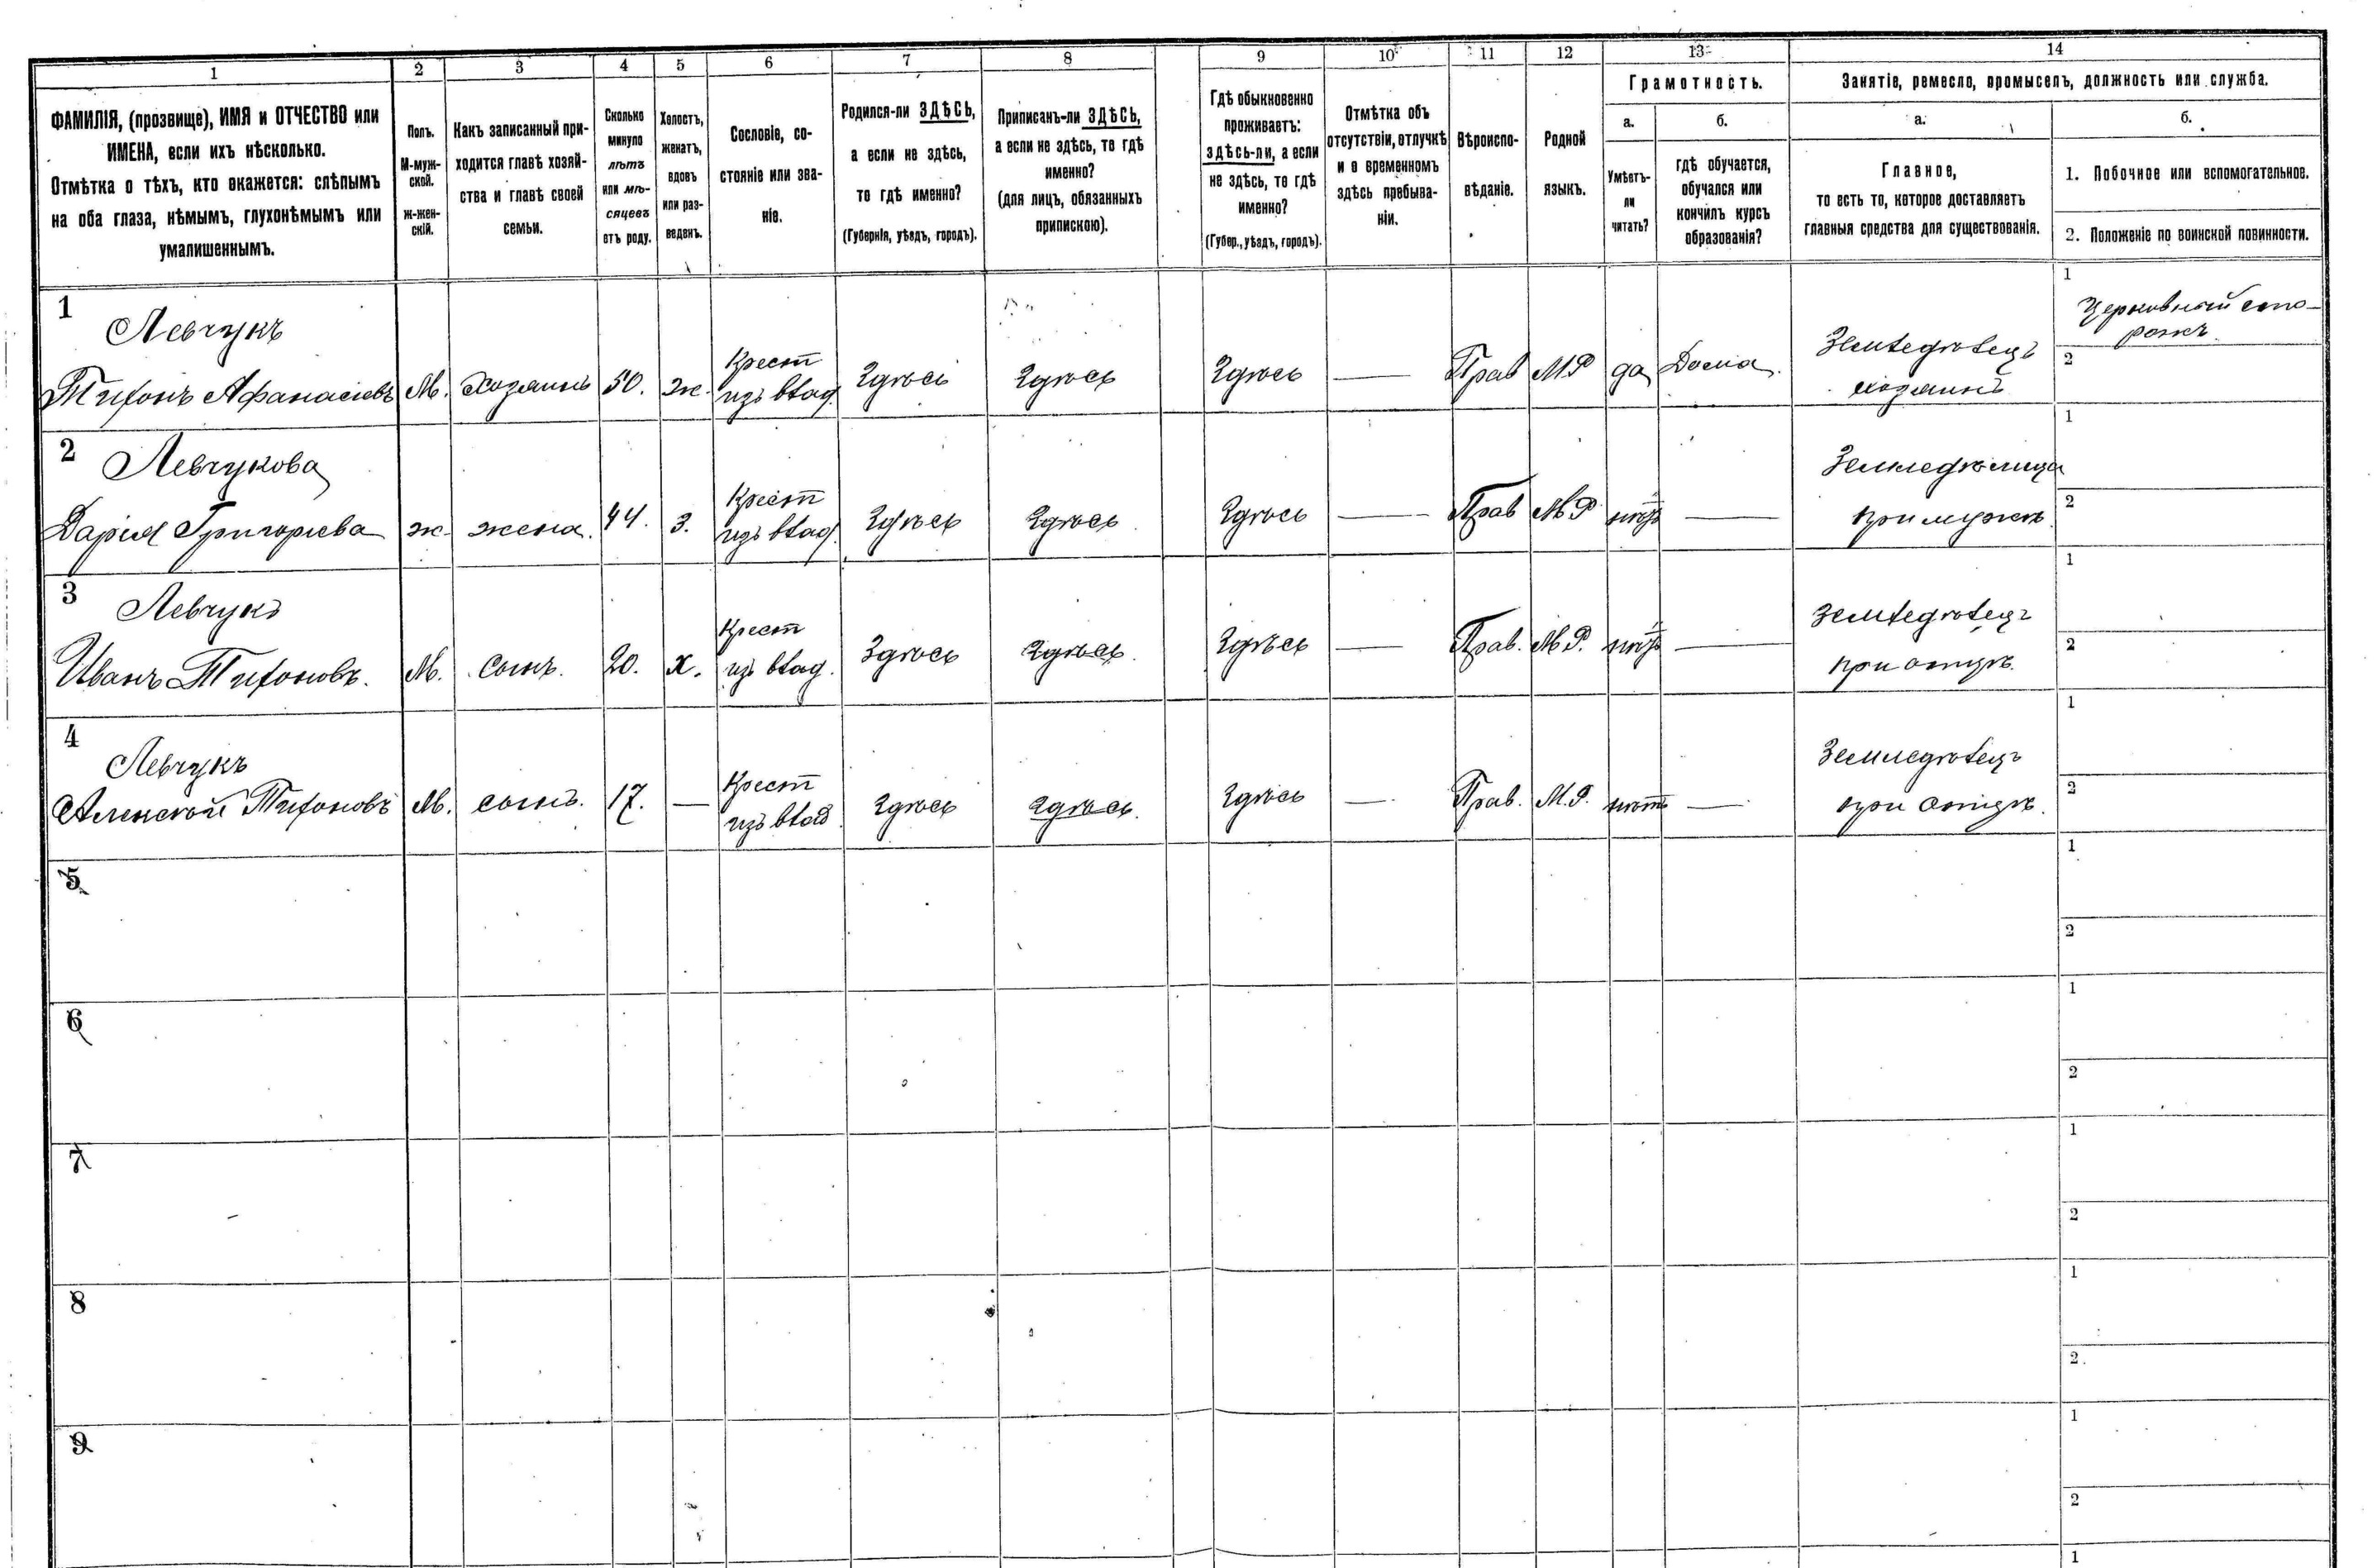 1 2 3 4 5 6 7 8 9 10 11 12 13 14
ФАМИЛІЯ, (прозвище), ИМЯ и ОТЧЕСТВО или
ИМЕНА, если ихъ нѣсколько.
Отмѣтка о тѣхъ, кто окажется: слѣпымъ
на оба глаза, нѣмымъ, глухонѣмымъ или
умалишеннымъ.
Полъ.
М-муж-
ской.
ж-жен-
скій.
Какъ записанный при-
ходится главѣ хозяй-
ства и главѣ своей
семьи.
Сколько
минуло
лѣтъ
или мѣ-
сяцевъ
отъ роду.
Холостъ,
женатъ,
вдовъ
или раз-
веденъ.
Сословіе, со-
стояніе или зва-
ніе.
Родился-ли ЗДѢСЬ,
а если не здѣсь,
то гдѣ именно?
(Губернія, уѣздъ, городъ).
Приписанъ-ли ЗДѢСЬ,
а если не здѣсь, то гдѣ
именно?
(для лицъ, обязанныхъ
припискою).
Гдѣ обыкновенно
проживаетъ:
здѣсь-ли, а если
не здѣсь, то гдѣ
именно?
(Губер., уѣздъ, городъ).
Отмѣтка объ
отсутствіи, отлучкѣ
и о временномъ
здѣсь пребыва-
ніи.
Вѣроиспо-
вѣданіе.
Родной
языкъ.
Грамотность.
а.
Умѣетъ-
ли
читать?
б.
гдѣ обучается,
обучался или
кончилъ курсъ
образованія?
Занятіе, ремесло, промыселъ, должность или служба.
а.
Главное,
то есть то, которое доставляетъ
главныя средства для существованія.
б.
1. Побочное или вспомогательное.
2. Положеніе по воинской повинности.
1
Левчукъ
Тихонъ Афанасіевъ М. хозяинъ 50. ж. Крест
изъ влад. Здѣсь Здѣсь Здѣсь — Прав М Р да Дома.
Земледѣлецъ
хозяинъ
1
Церковный сто-
рожъ.
2
2
Левчукова
Дарія Григоріева ж. жена. 44. з. Крест
изъ влад. Здѣсь Здѣсь Здѣсь — Прав М Р нѣтъ —
Земледѣлица
при мужѣ.
1
2
3
Левчукъ
Иванъ Тихоновъ. М. сынъ. 20. х. Крест
изъ влад. Здѣсь Здѣсь. Здѣсь — Прав. М Р. нѣтъ —
Земледѣлецъ
при отцѣ.
1
2
4
Левчукъ
Алексѣй Тихоновъ М. сынъ. 17. — Крест
изъ влад. Здѣсь Здѣсь. Здѣсь — Прав. М. Р. нѣтъ —
Земледѣлецъ
при отцѣ.
1
2
5
1
2
6
1
2
7
1
2
8
1
2
9
1
2
1